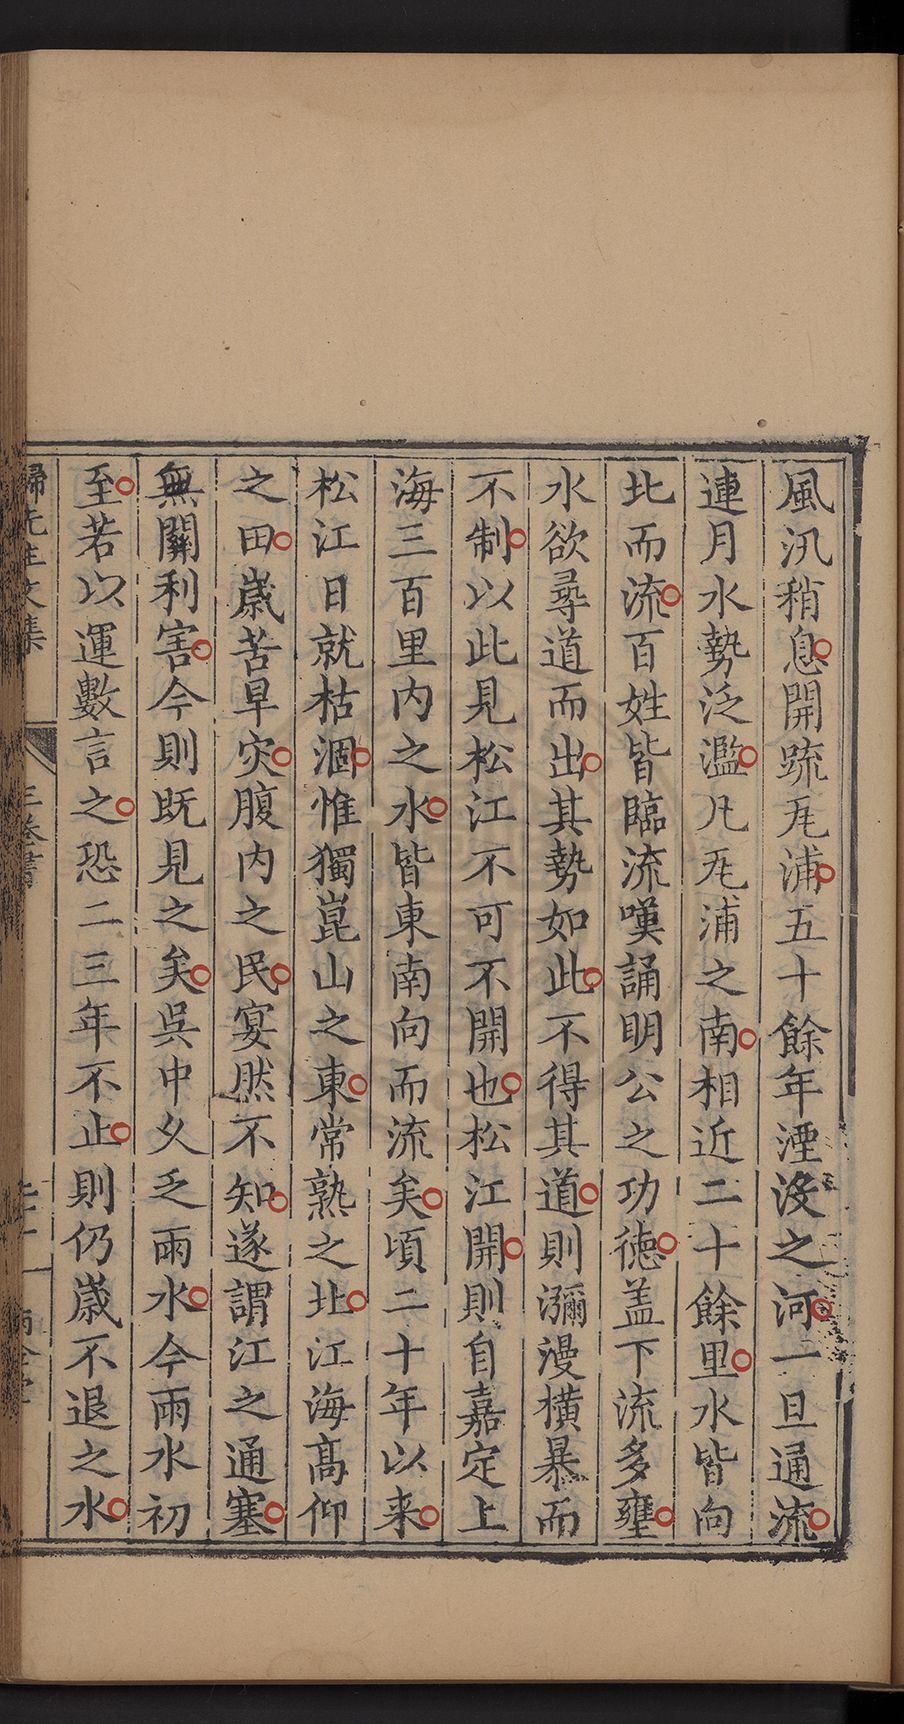 風汛稍息開䟽𠃵浦五十餘年湮沒之河一旦通流
連月水勢泛濫凡𠃵浦之南相近二十餘里水皆向
北而流百姓皆臨流嘆誦明公之功德盖下流多壅
水欲尋道而出其勢如此不得其道則瀰漫橫暴而
不制以此見松江不可不開也松江開則自嘉定上
海三百里内之水皆東南向而流矣頃二十年以来
松江日就枯涸惟獨崑山之東常熟之北江海髙仰
之田嵗苦旱灾腹内之民宴然不知遂謂江之通塞
無關利害今則既見之矣吳中乆乏雨水今雨水初
至若以運數言之恐二三年不止則仍嵗不退之水
歸先生文集 三卷書